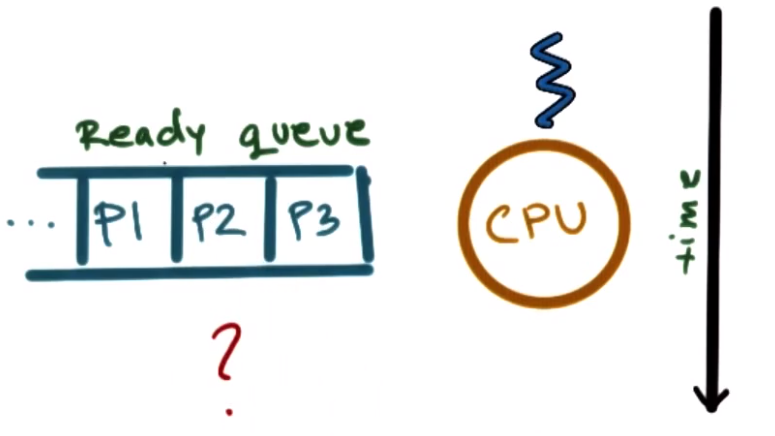 Ready queue
... P1 P2 P3
CPU
time
?